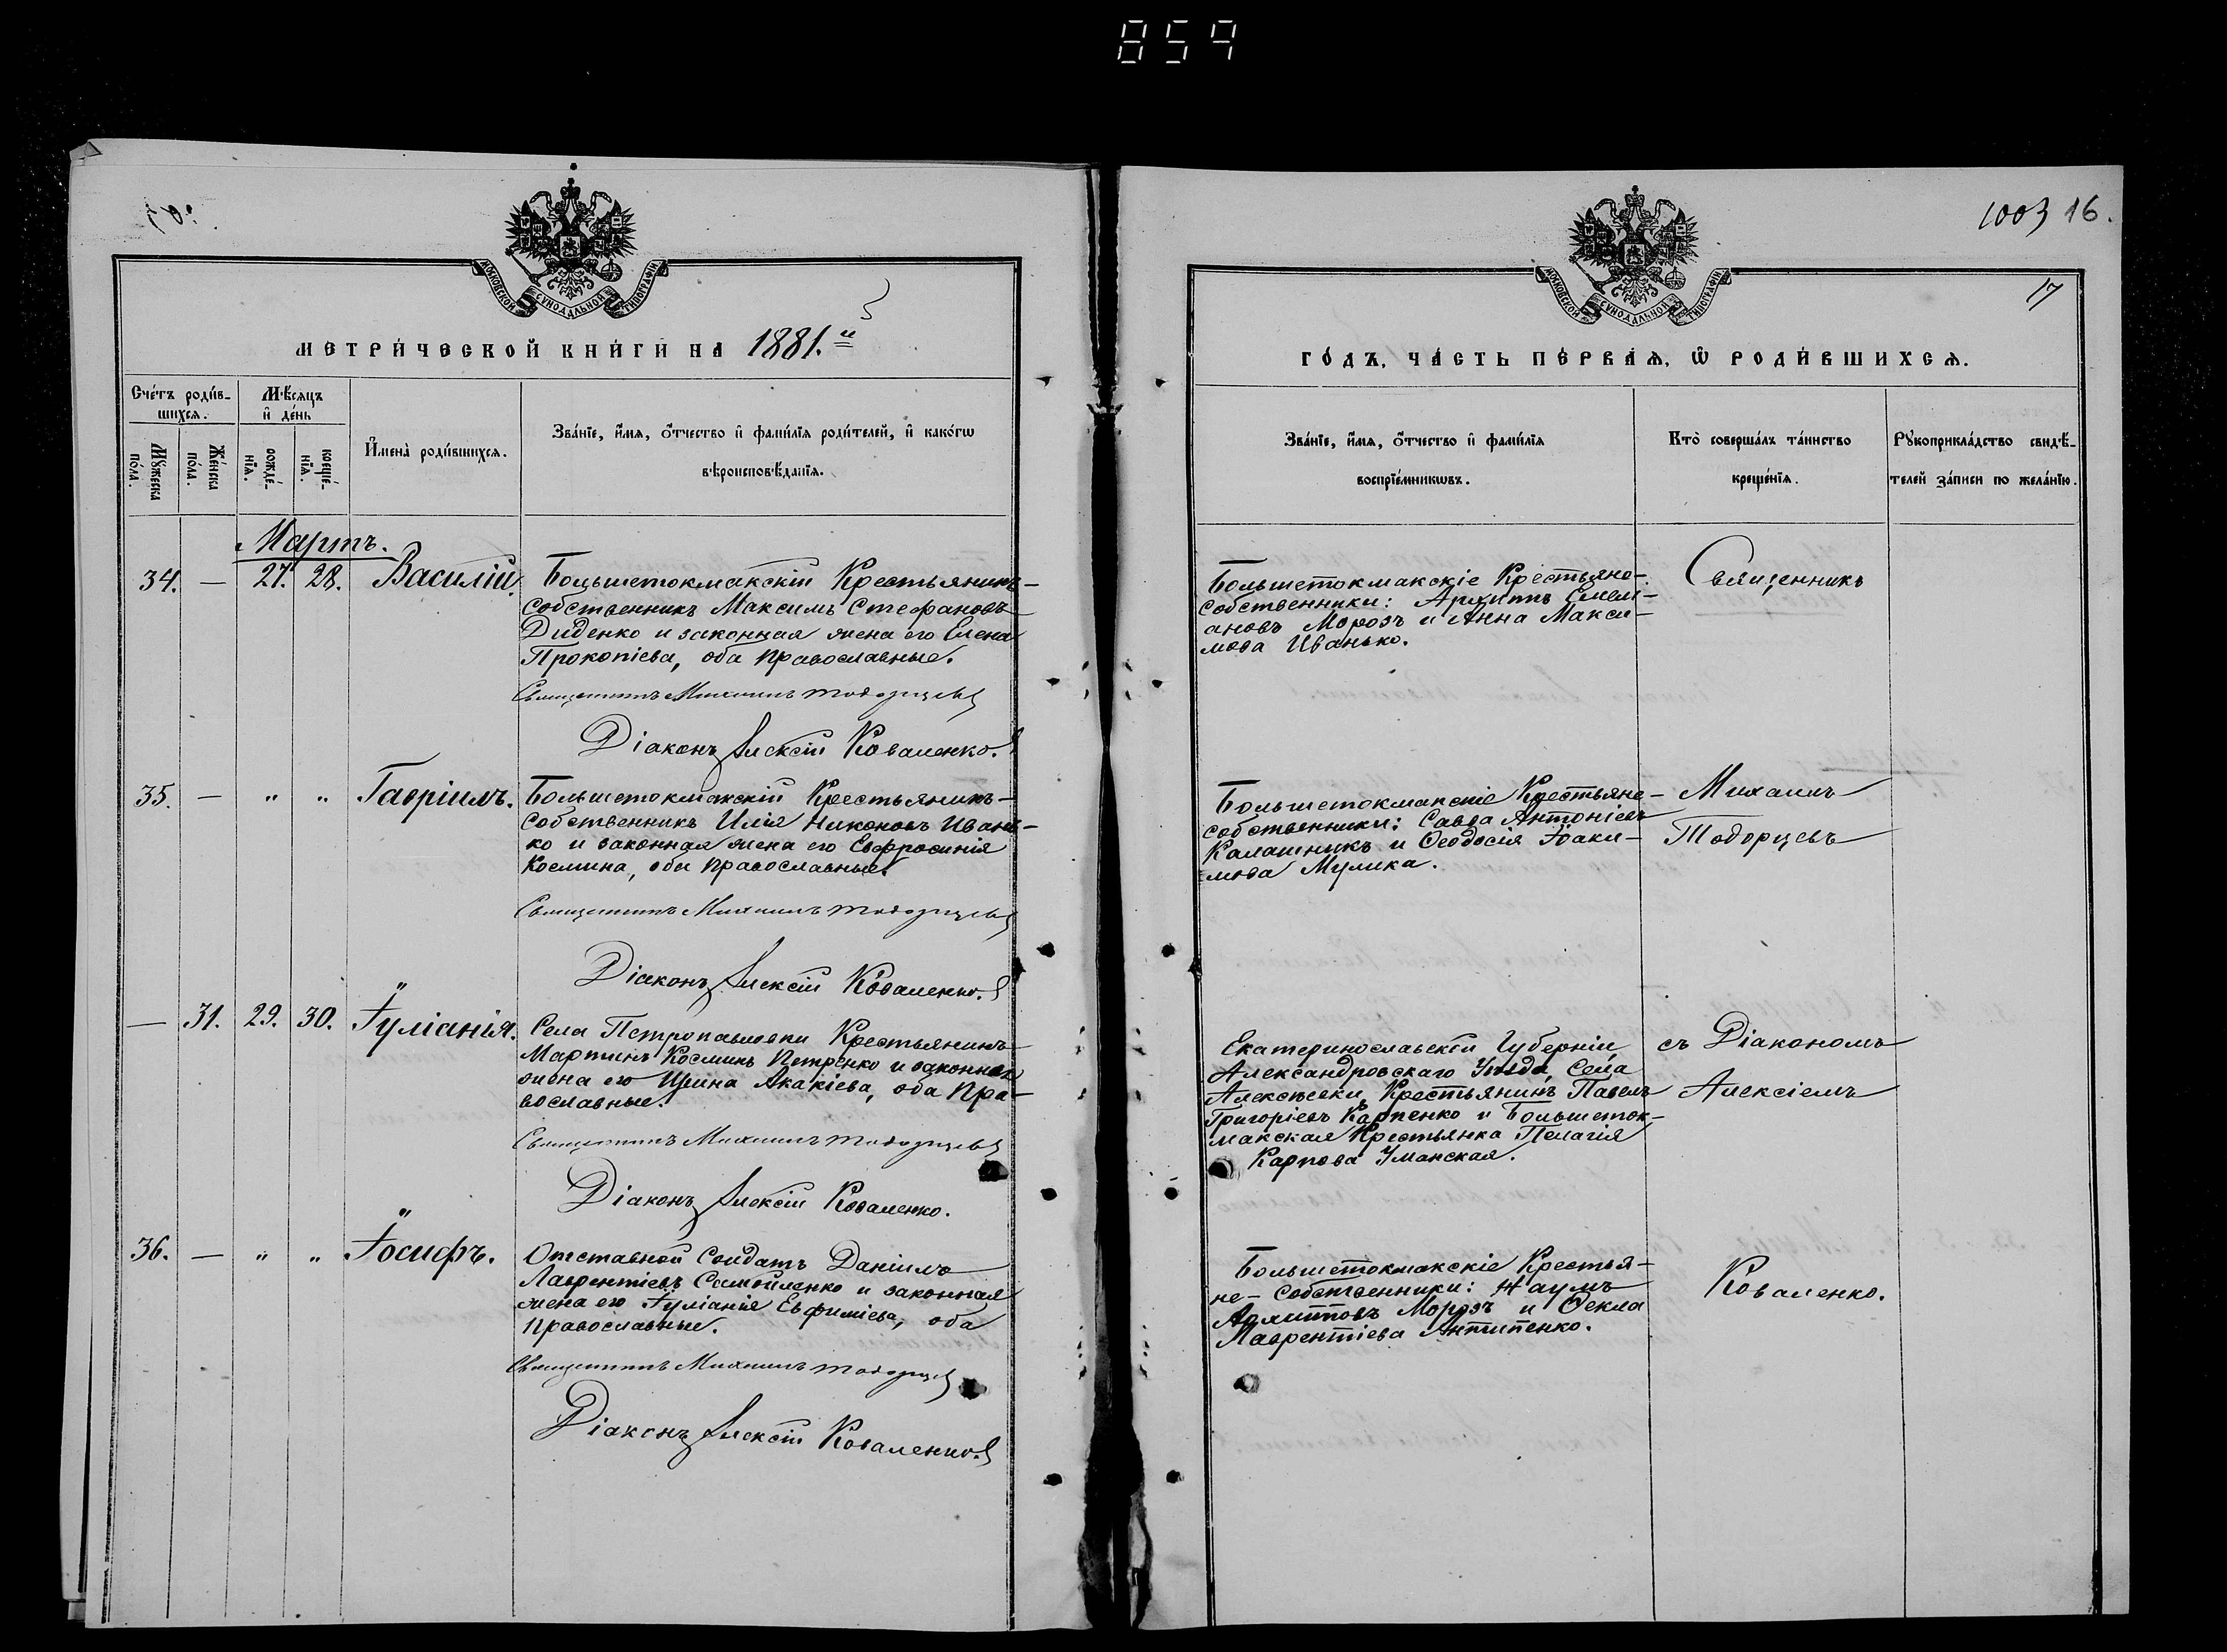 859
1003 16.
17
МОСКОВСКОЙ СѴНОДАЛЬНОЙ ТИПОГРАФІИ
МЕТРИ́ЧЕСКОЙ КНИ́ГИ НА 1881.й
Сче́тъ роди́в-
шихся.
Мѣ́сяцъ
и҆ де́нь
Мꙋ́жеска
по́ла.
Же́нска
по́ла.
рожде́-
нїя.
креще́-
нїя.
И҆мена̀ роди́вшихся.
Зва́нїе, и҆́мя, ѻ҆́тчество и҆ фами́лїя роди́телей, и҆ како́гѡ
вѣроисповѣ́данїя.
Мартъ.
34. — 27. 28. Василій.
Большетокмакскій Крестьянинъ-
собственникъ Максимъ Стефановъ
Диденко и законная жена его Елена
Прокопіева, оба православные.
Священникъ Михаилъ Тодорцевъ
Діаконъ Алексій Коваленко.
35. — " " Гавріилъ.
Большетокмакскій Крестьянинъ-
собственникъ Илія Никоновъ Ивань-
ко и законная жена его Евфросинія
Космина, оба православные.
Священникъ Михаилъ Тодорцевъ
Діаконъ Алексій Коваленко.
— 31. 29. 30. Іуліанія.
Села Петропавловки Крестьянинъ
Мартинъ Косминъ Петренко и законная
жена его Ирина Акакіева, оба пра-
вославные.
Священникъ Михаилъ Тодорцевъ
Діаконъ Алексій Коваленко.
36. — " " Іосифъ.
Отставной Солдатъ Даніилъ
Лаврентіевъ Самойленко и законная
жена его Іуліанія Евфиміева, оба
православные.
Священникъ Михаилъ Тодорцевъ
Діаконъ Алексій Коваленко.
МОСКОВСКОЙ СѴНОДАЛЬНОЙ ТИПОГРАФІИ
ГО́ДЪ, ЧА́СТЬ ПЕ́РВАЯ, Ѽ РОДИ́ВШИХСЯ.
Зва́нїе, и҆́мя, ѻ҆́тчество и҆ фами́лїя
воспрїе́мникѡвъ.
Кто̀ соверша́лъ та́инство
креще́нїя.
Рꙋкоприкла́дство свидѣ́-
телей за́писи по жела́нїю.
Большетокмакскіе Крестьяне-
собственники: Архиппъ Емели-
ановъ Морозъ и Анна Макси-
мова Иванько.
Священникъ
Большетокмакскіе Крестьяне-
собственники: Савва Антоніевъ
Калашникъ и Ѳеодосія Іоаки-
мова Мулика.
Михаилъ
Тодорцевъ
Екатеринославской Губерніи
Александровскаго Уѣзда, Села
Алексѣевки Крестьянинъ Павелъ
Григоріевъ Карпенко и Большеток-
макская Крестьянка Пелагія
Карпова Уманская.
съ Діакономъ
Алексіемъ
Большетокмакскіе Крестья-
не-собственники: Наумъ
Морозъ и Ѳекла
Лаврентіева Антипенко.
Коваленко.